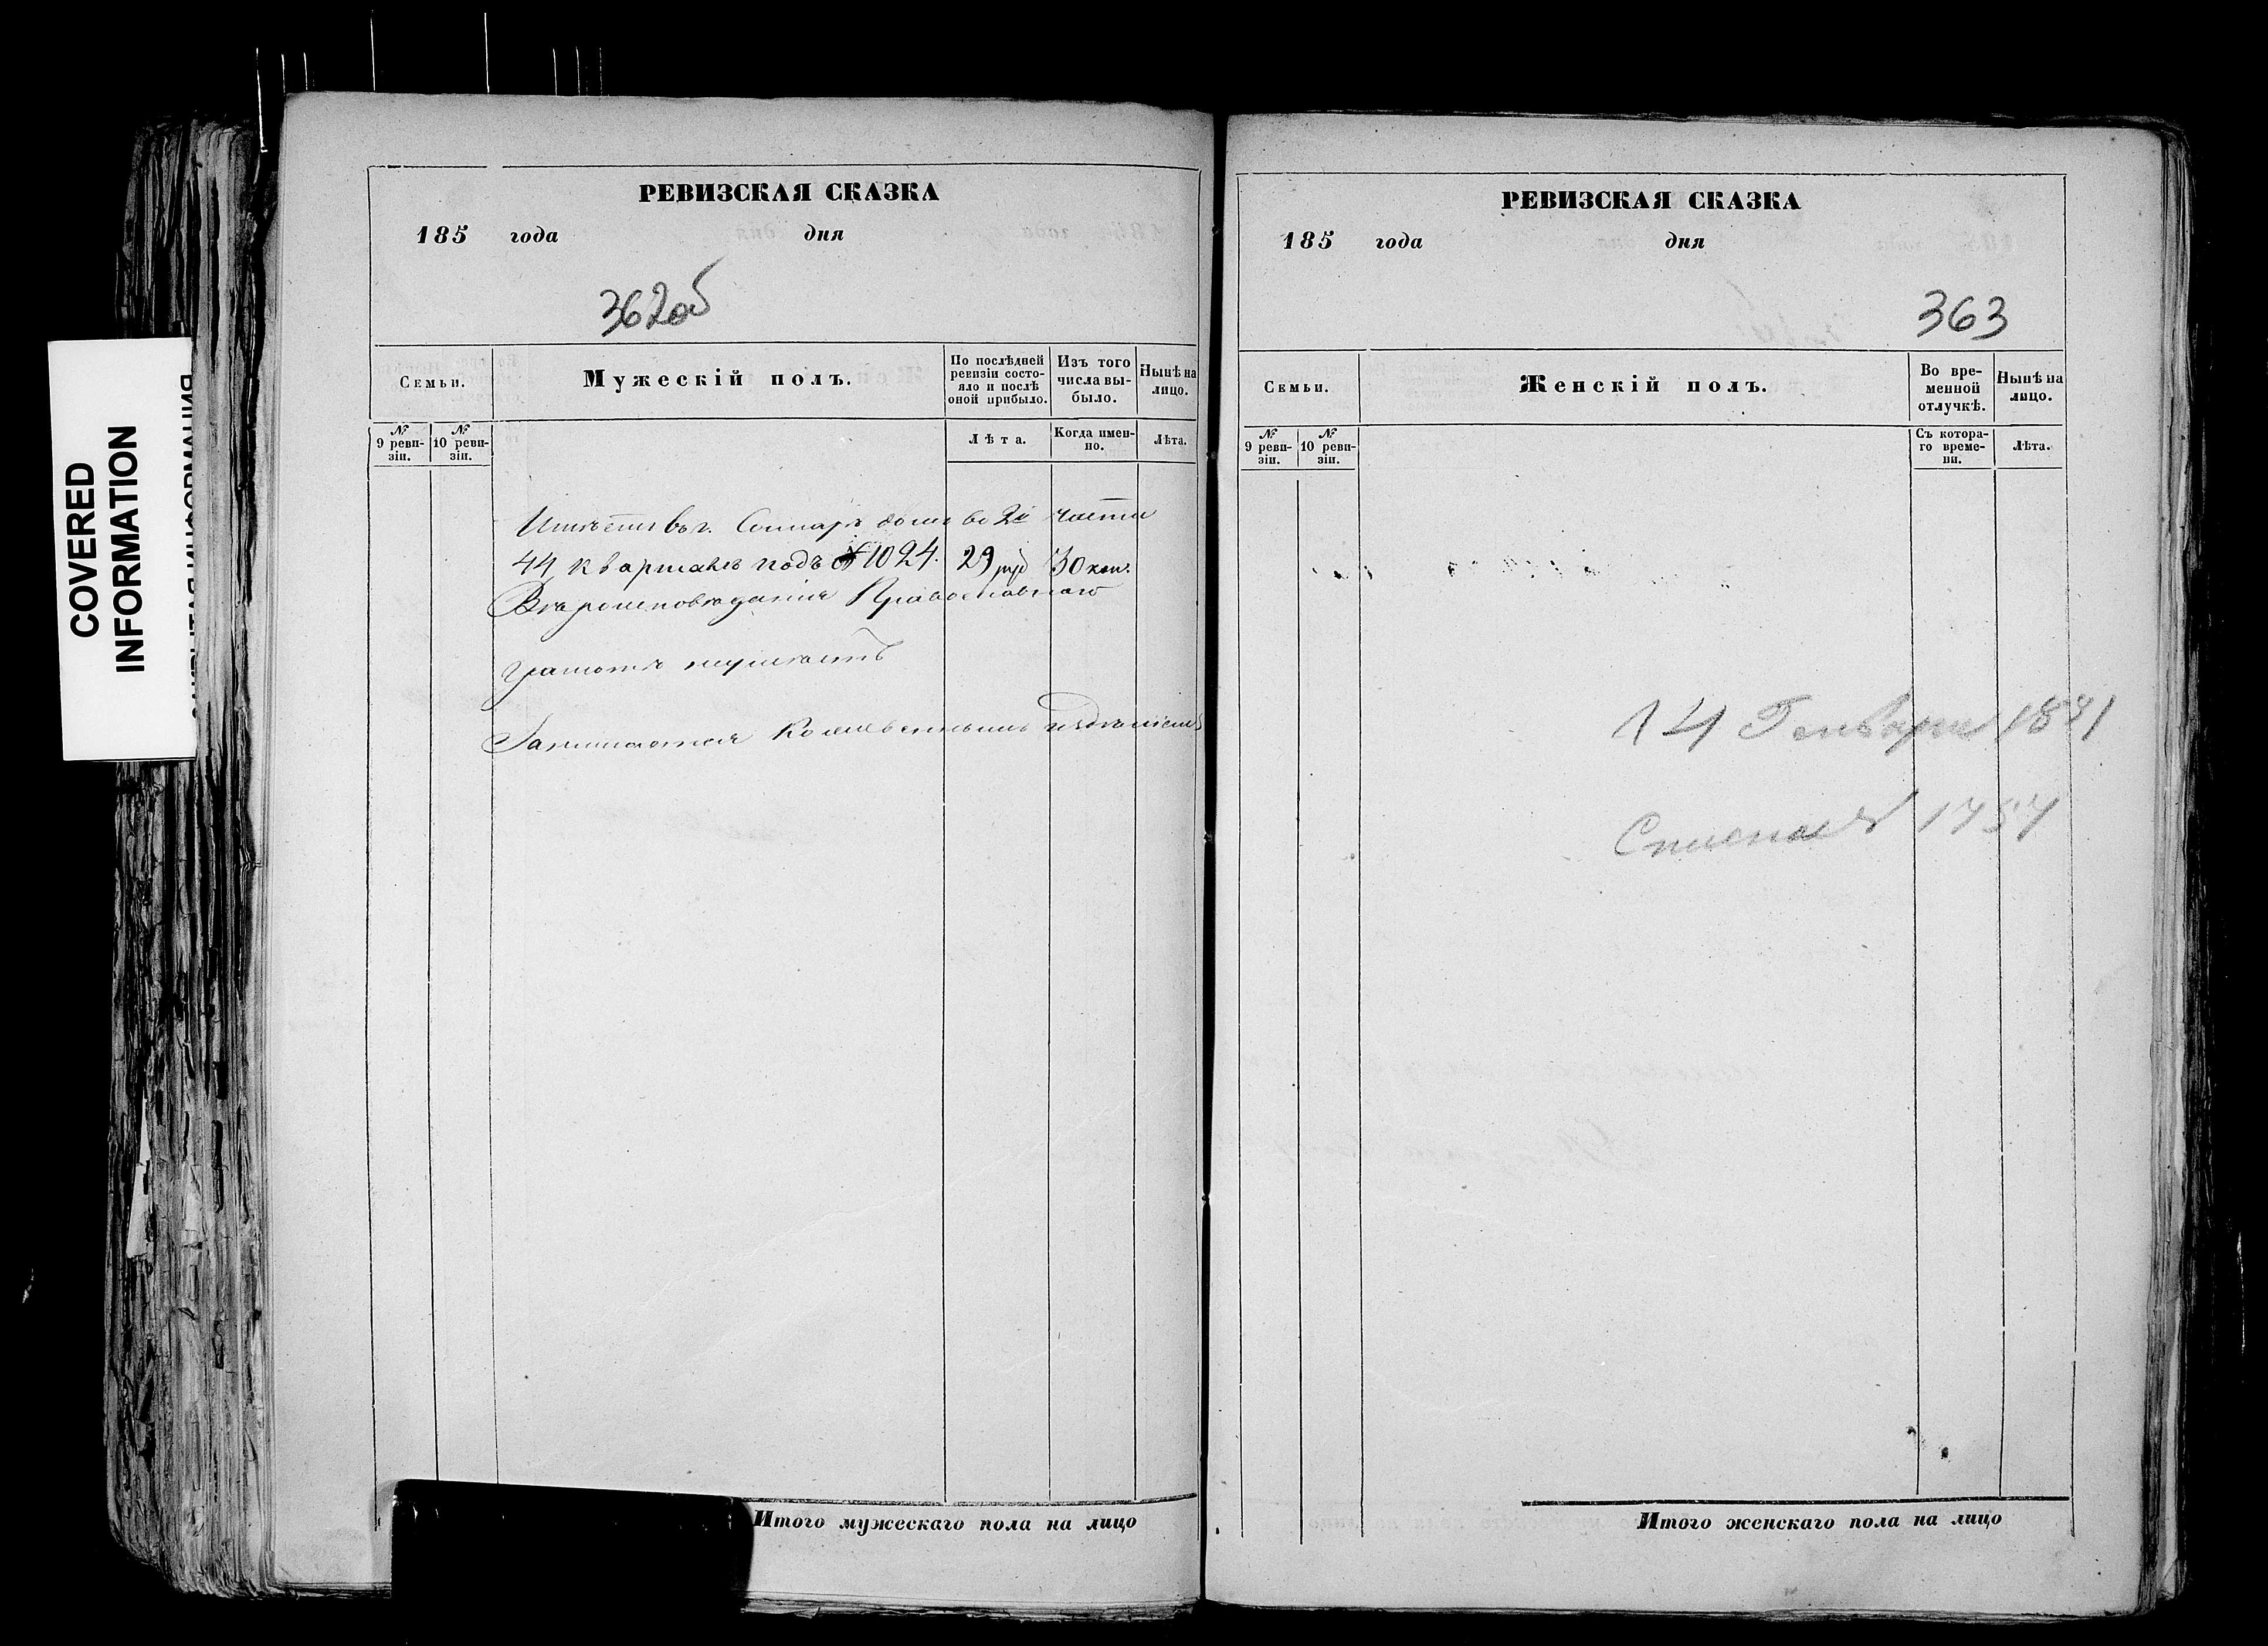 COVERED
INFORMATION
РЕВИЗСКАЯ СКАЗКА
185 года дня
362об
Семьи.
Мужескій полъ.
По послѣдней ревизіи состояло и послѣ оной прибыло.
Изъ того числа выбыло.
Нынѣ на лицо.
№ 9 ревизіи.
№ 10 ревизіи.
Лѣта.
Когда именно.
Лѣта.
Имѣетъ въ г. Самарѣ домъ во 2й части
44 квартале подъ № 1024. 29 руб 30 коп.
Вѣроисповѣданія Православнаго
грамотѣ неумѣетъ
Занимается
Итого мужескаго пола на лицо
РЕВИЗСКАЯ СКАЗКА
185 года дня
363
Семьи.
Женскій полъ.
Во временной отлучкѣ.
Нынѣ на лицо.
№ 9 ревизіи.
№ 10 ревизіи.
Съ котораго времени.
Лѣта.
14 Генваря
Итого женскаго пола на лицо